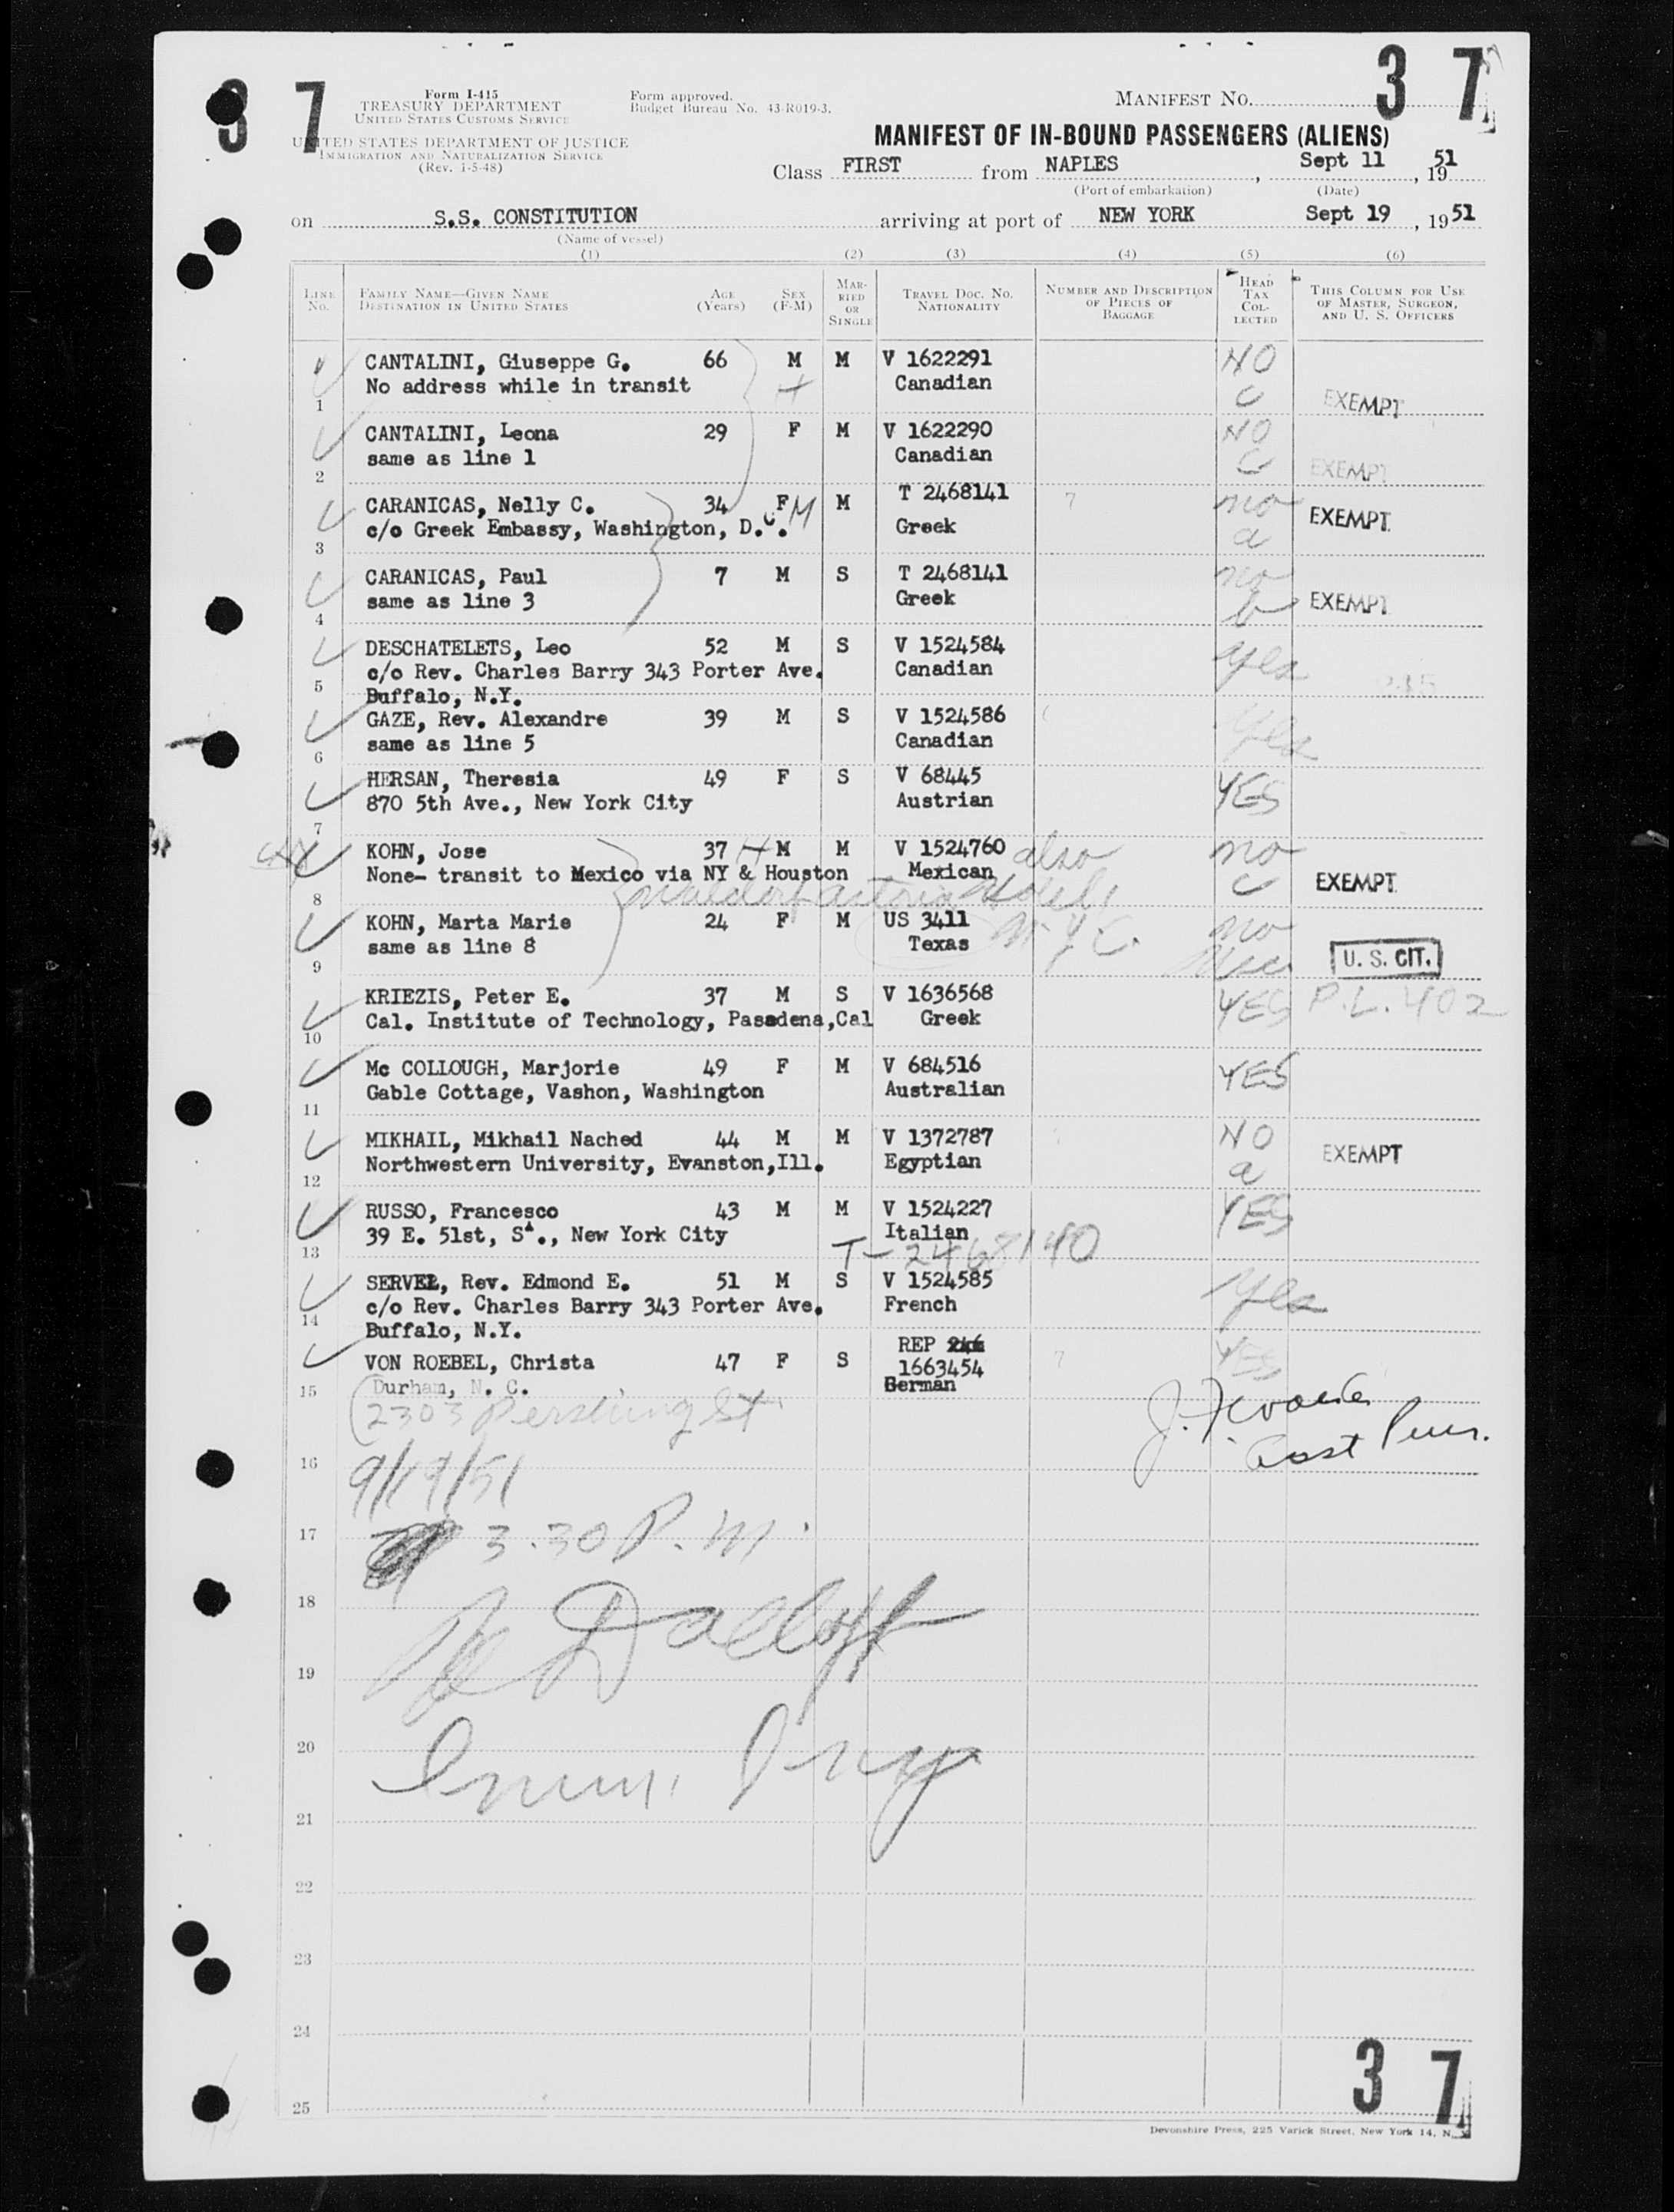 3 7
3 7
Form I-415
TREASURY DEPARTMENT
UNITED STATES CUSTOMS SERVICE
UNITED STATES DEPARTMENT OF JUSTICE
IMMIGRATION AND NATURALIZATION SERVICE
(Rev. 1-5-48)
Form approved.
Budget Bureau No. 43-R019-3.
MANIFEST NO.
MANIFEST OF IN-BOUND PASSENGERS (ALIENS)
Class FIRST from NAPLES, Sept 11, 1951
(Port of embarkation) (Date)
on S.S. CONSTITUTION arriving at port of NEW YORK Sept 19, 1951
(Name of vessel)
(1) (2) (3) (4) (5) (6)
LINE NO. FAMILY NAME—GIVEN NAME DESTINATION IN UNITED STATES AGE (Years) SEX (F-M) MARRIED OR SINGLE TRAVEL DOC. NO. NATIONALITY NUMBER AND DESCRIPTION OF PIECES OF BAGGAGE HEAD TAX COLLECTED THIS COLUMN FOR USE OF MASTER, SURGEON, AND U. S. OFFICERS
CANTALINI, Giuseppe G. 66 M M V 1622291 NO
1 No address while in transit Canadian C EXEMPT
CANTALINI, Leona 29 F M V 1622290 NO
2 same as line 1 Canadian C EXEMPT
CARANICAS, Nelly C. 34 F M M T 2468141 no
3 c/o Greek Embassy, Washington, D.C. Greek a EXEMPT
CARANICAS, Paul 7 M S T 2468141 no
4 same as line 3 Greek b EXEMPT
DESCHATELETS, Leo 52 M S V 1524584 yes
5 c/o Rev. Charles Barry 343 Porter Ave. Canadian
Buffalo, N.Y.
GAZE, Rev. Alexandre 39 M S V 1524586 yes
6 same as line 5 Canadian
HERSAN, Theresia 49 F S V 68445 YES
7 870 5th Ave., New York City Austrian
KOHN, Jose 37 M M V 1524760 also no
8 None- transit to Mexico via NY & Houston Mexican C EXEMPT
Waldorf Astoria Hotel
KOHN, Marta Marie 24 F M US 3411 N.Y.C. no
9 same as line 8 Texas U. S. CIT.
KRIEZIS, Peter E. 37 M S V 1636568 YES P.L. 402
10 Cal. Institute of Technology, Pasadena,Cal Greek
Mc COLLOUGH, Marjorie 49 F M V 684516 YES
11 Gable Cottage, Vashon, Washington Australian
MIKHAIL, Mikhail Nached 44 M M V 1372787 NO
12 Northwestern University, Evanston,Ill. Egyptian a EXEMPT
RUSSO, Francesco 43 M M V 1524227 YES
13 39 E. 51st, St., New York City Italian
T-2468140
SERVEL, Rev. Edmond E. 51 M S V 1524585 yes
14 c/o Rev. Charles Barry 343 Porter Ave. French
Buffalo, N.Y.
VON ROEBEL, Christa 47 F S REP 1663454 YES
15 Durham, N. C. German
2303 Pershing St
16 9/19/51
17 3.30 P.M.
18
19
20
Imm. Insp
21
22
23
24
25
3 7
Devonshire Press, 225 Varick Street, New York 14, N.